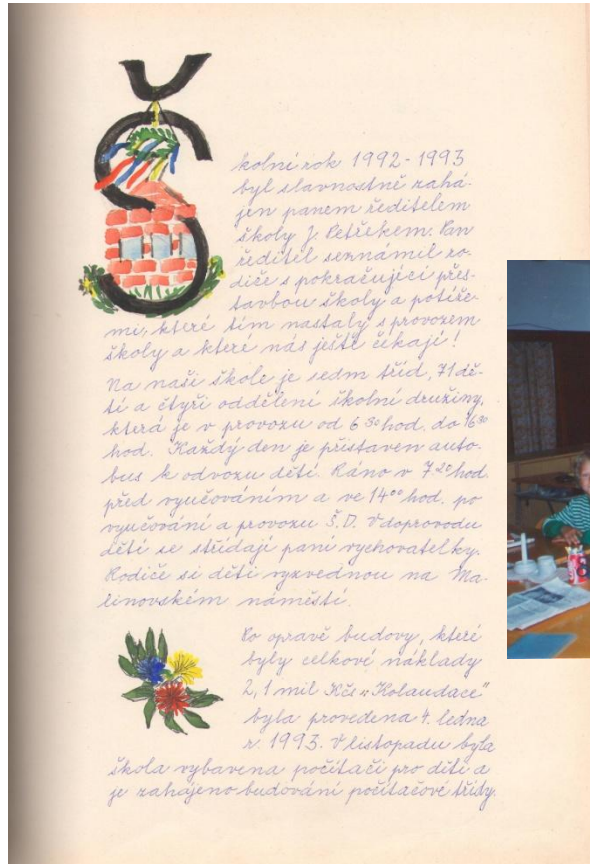 Školní rok 1992-1993
byl slavnostně zahá-
jen panem ředitelem
školy J. Petřekem. Pan
ředitel seznámil ro-
diče s pokračující přes-
tavbou školy a potíže-
mi, které tím nastaly s provozem
školy a které nás ještě čekají!
Na naší škole je sedm tříd, 71 dě-
tí a čtyři oddělení školní družiny,
která je v provozu od 6 30 hod. do 16 30
hod. Každý den je přistaven auto-
bus k odvozu dětí. Ráno v 7 20 hod.
před vyučováním a ve 14 00 hod. po
vyučování a provozu Š.D. V doprovodu
dětí se střídají paní vychovatelky.
Rodiče si děti vyzvednou na Ma-
linovském náměstí.
Po opravě budovy, které
byly celkové náklady
2,1 mil Kčs "Kolaudace"
byla provedena 4. ledna
r. 1993. V listopadu byla
škola vybavena počítači pro děti a
je zahájeno budování počítačové třídy.